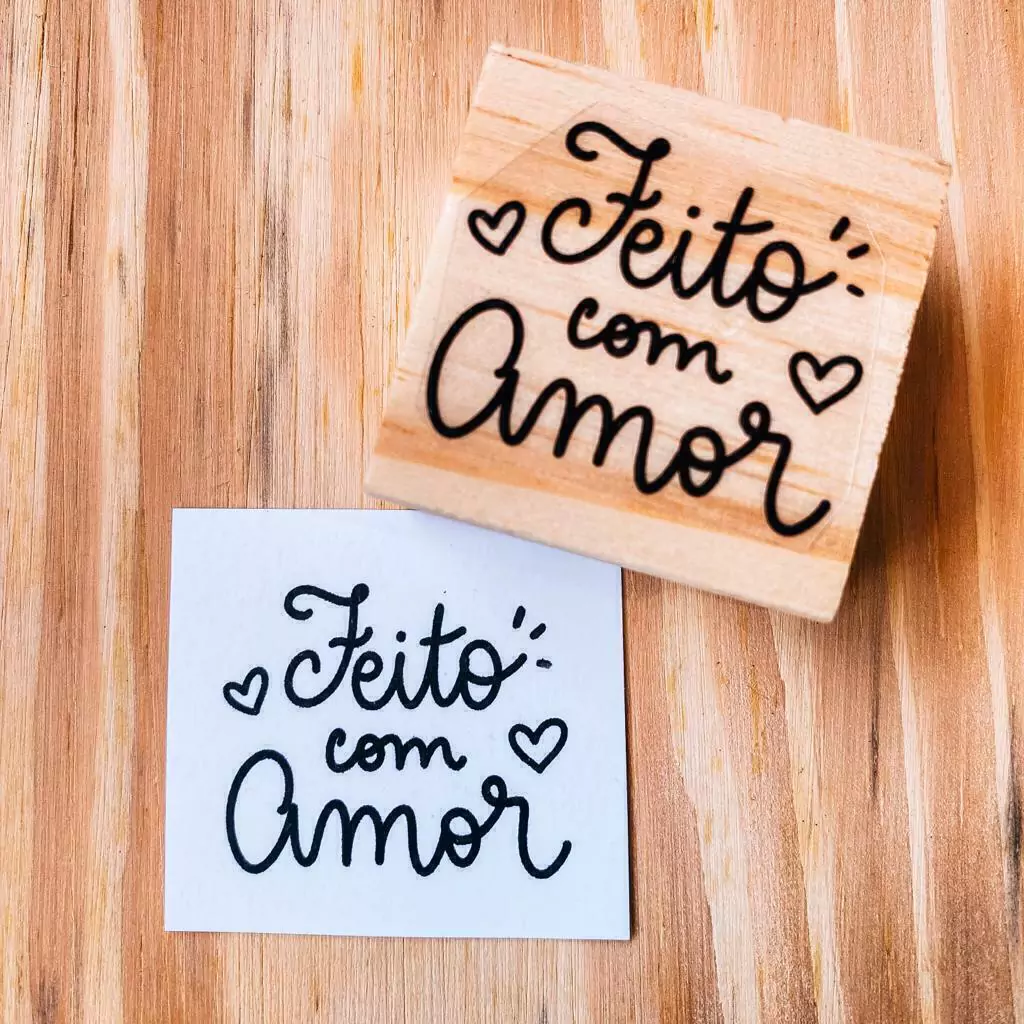 Feito
com
Amor
Feito
com
Amor